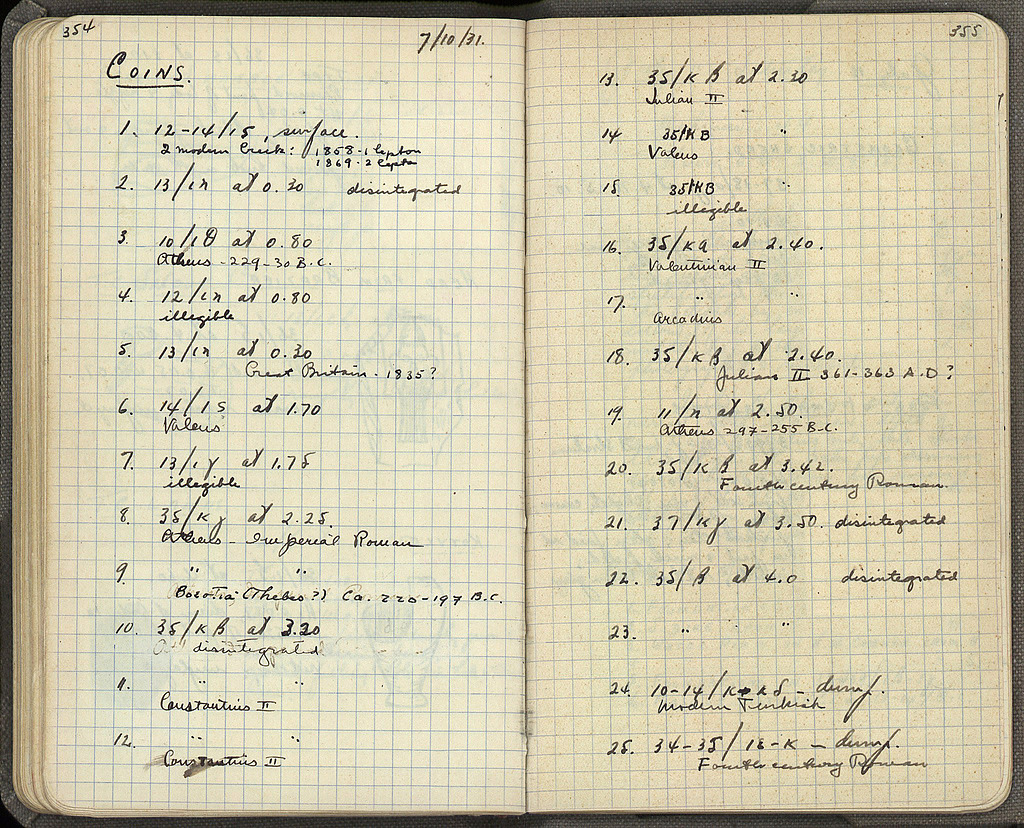 354
7/10/31.
COINS.
1. 12-14/15, surface.
2 modern Greek: 1858-1 lepton
1869-2 lepta
2. 13/ιη at 0.30 disintegrated
3. 10/ιθ at 0.80
Athens - 229-30 B.C.
4. 12/ιη at 0.80
illegible
5. 13/ιη at 0.30
Great Britain - 1835?
6. 14/ιs at 1.70
Valens
7. 13/ιγ at 1.75
illegible
8. 35/κγ at 2.25.
Athens - Imperial Roman
9. " "
Boeotia (Thebes?) Ca. 220-197 B.C.
10. 35/κβ at 3.20
disintegrated
11. " "
Constantius II
12. " "
Constantius II
355
13. 35/κβ at 2.30
Julian II
14 35/κβ "
Valens
15. 35/κβ "
illegible
16. 35/κα at 2.40.
Valentinian II
17. " "
Arcadius
18. 35/κβ at 2.40.
Julian II 361-363 A.D?
19. 11/η at 2.50.
Athens 297-255 B.C.
20. 35/κβ at 3.42.
Fourth century Roman.
21. 37/κγ at 3.50. disintegrated
22. 35/β at 4.0 disintegrated
23. " "
24. 10-14/κ-κδ - dump.
Modern Turkish
25. 34-35/18-κ - dump.
Fourth century Roman